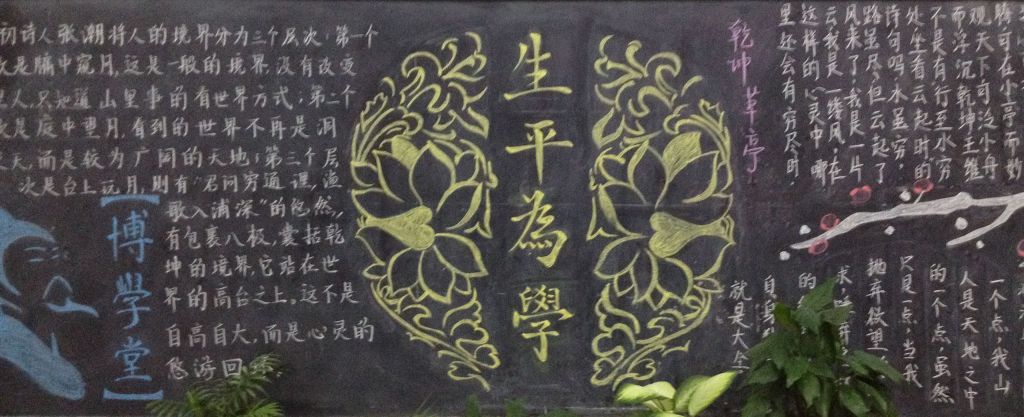 初诗人张潮将人的境界分为三个层次：第一个
次是牖中窥月，这是一般的境界，没有改变
里人，只知道山里事的有世界方式；第二个
次是庭中望月，看到的世界不再是洞
天，而是较为广阔的天地；第三个层
次是台上玩月，则有“君问穷通理，渔
歌入浦深”的悠然，
有包裹八极，囊括乾
坤的境界，它站在世
界的高台之上。这不是
自高自大，而是心灵的
悠游回
【博學堂】
生平為學
乾坤草亭
可在小亭而妙
观天下，可泛小舟
而浮沉乾坤，王维
不是有行至水穷
处，坐看云起时的
诗句吗？水虽穷，
路虽尽，但云起了，
风来了，我是一片
云，我是一缕风，在
这样的心灵中，哪
里还会有穷尽时。
一个点，我山
人是天地之中
的一个点，虽然
只是一点，当我
抛弃欲望，
求
的
自身
就是大全